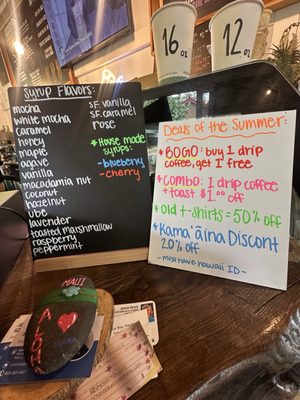 Syrup Flavors:
mocha
white mocha
caramel
honey
maple
agave
vanilla
macadamia nut
coconut
hazelnut
ube
lavender
toasted marshmallow
raspberry
peppermint
SF vanilla
SF caramel
rose
*House made
syrups:
-blueberry
-cherry
16
oz
12
oz
Deals of the Summer:
*BOGO: buy 1 drip
coffee, get 1 free
*Combo: 1 drip coffee
+ toast $1.00 off
*Old t-shirts = 50% off
*Kama'āina Discount
20% off
-must have hawaii ID-
MAUI
ALOHA